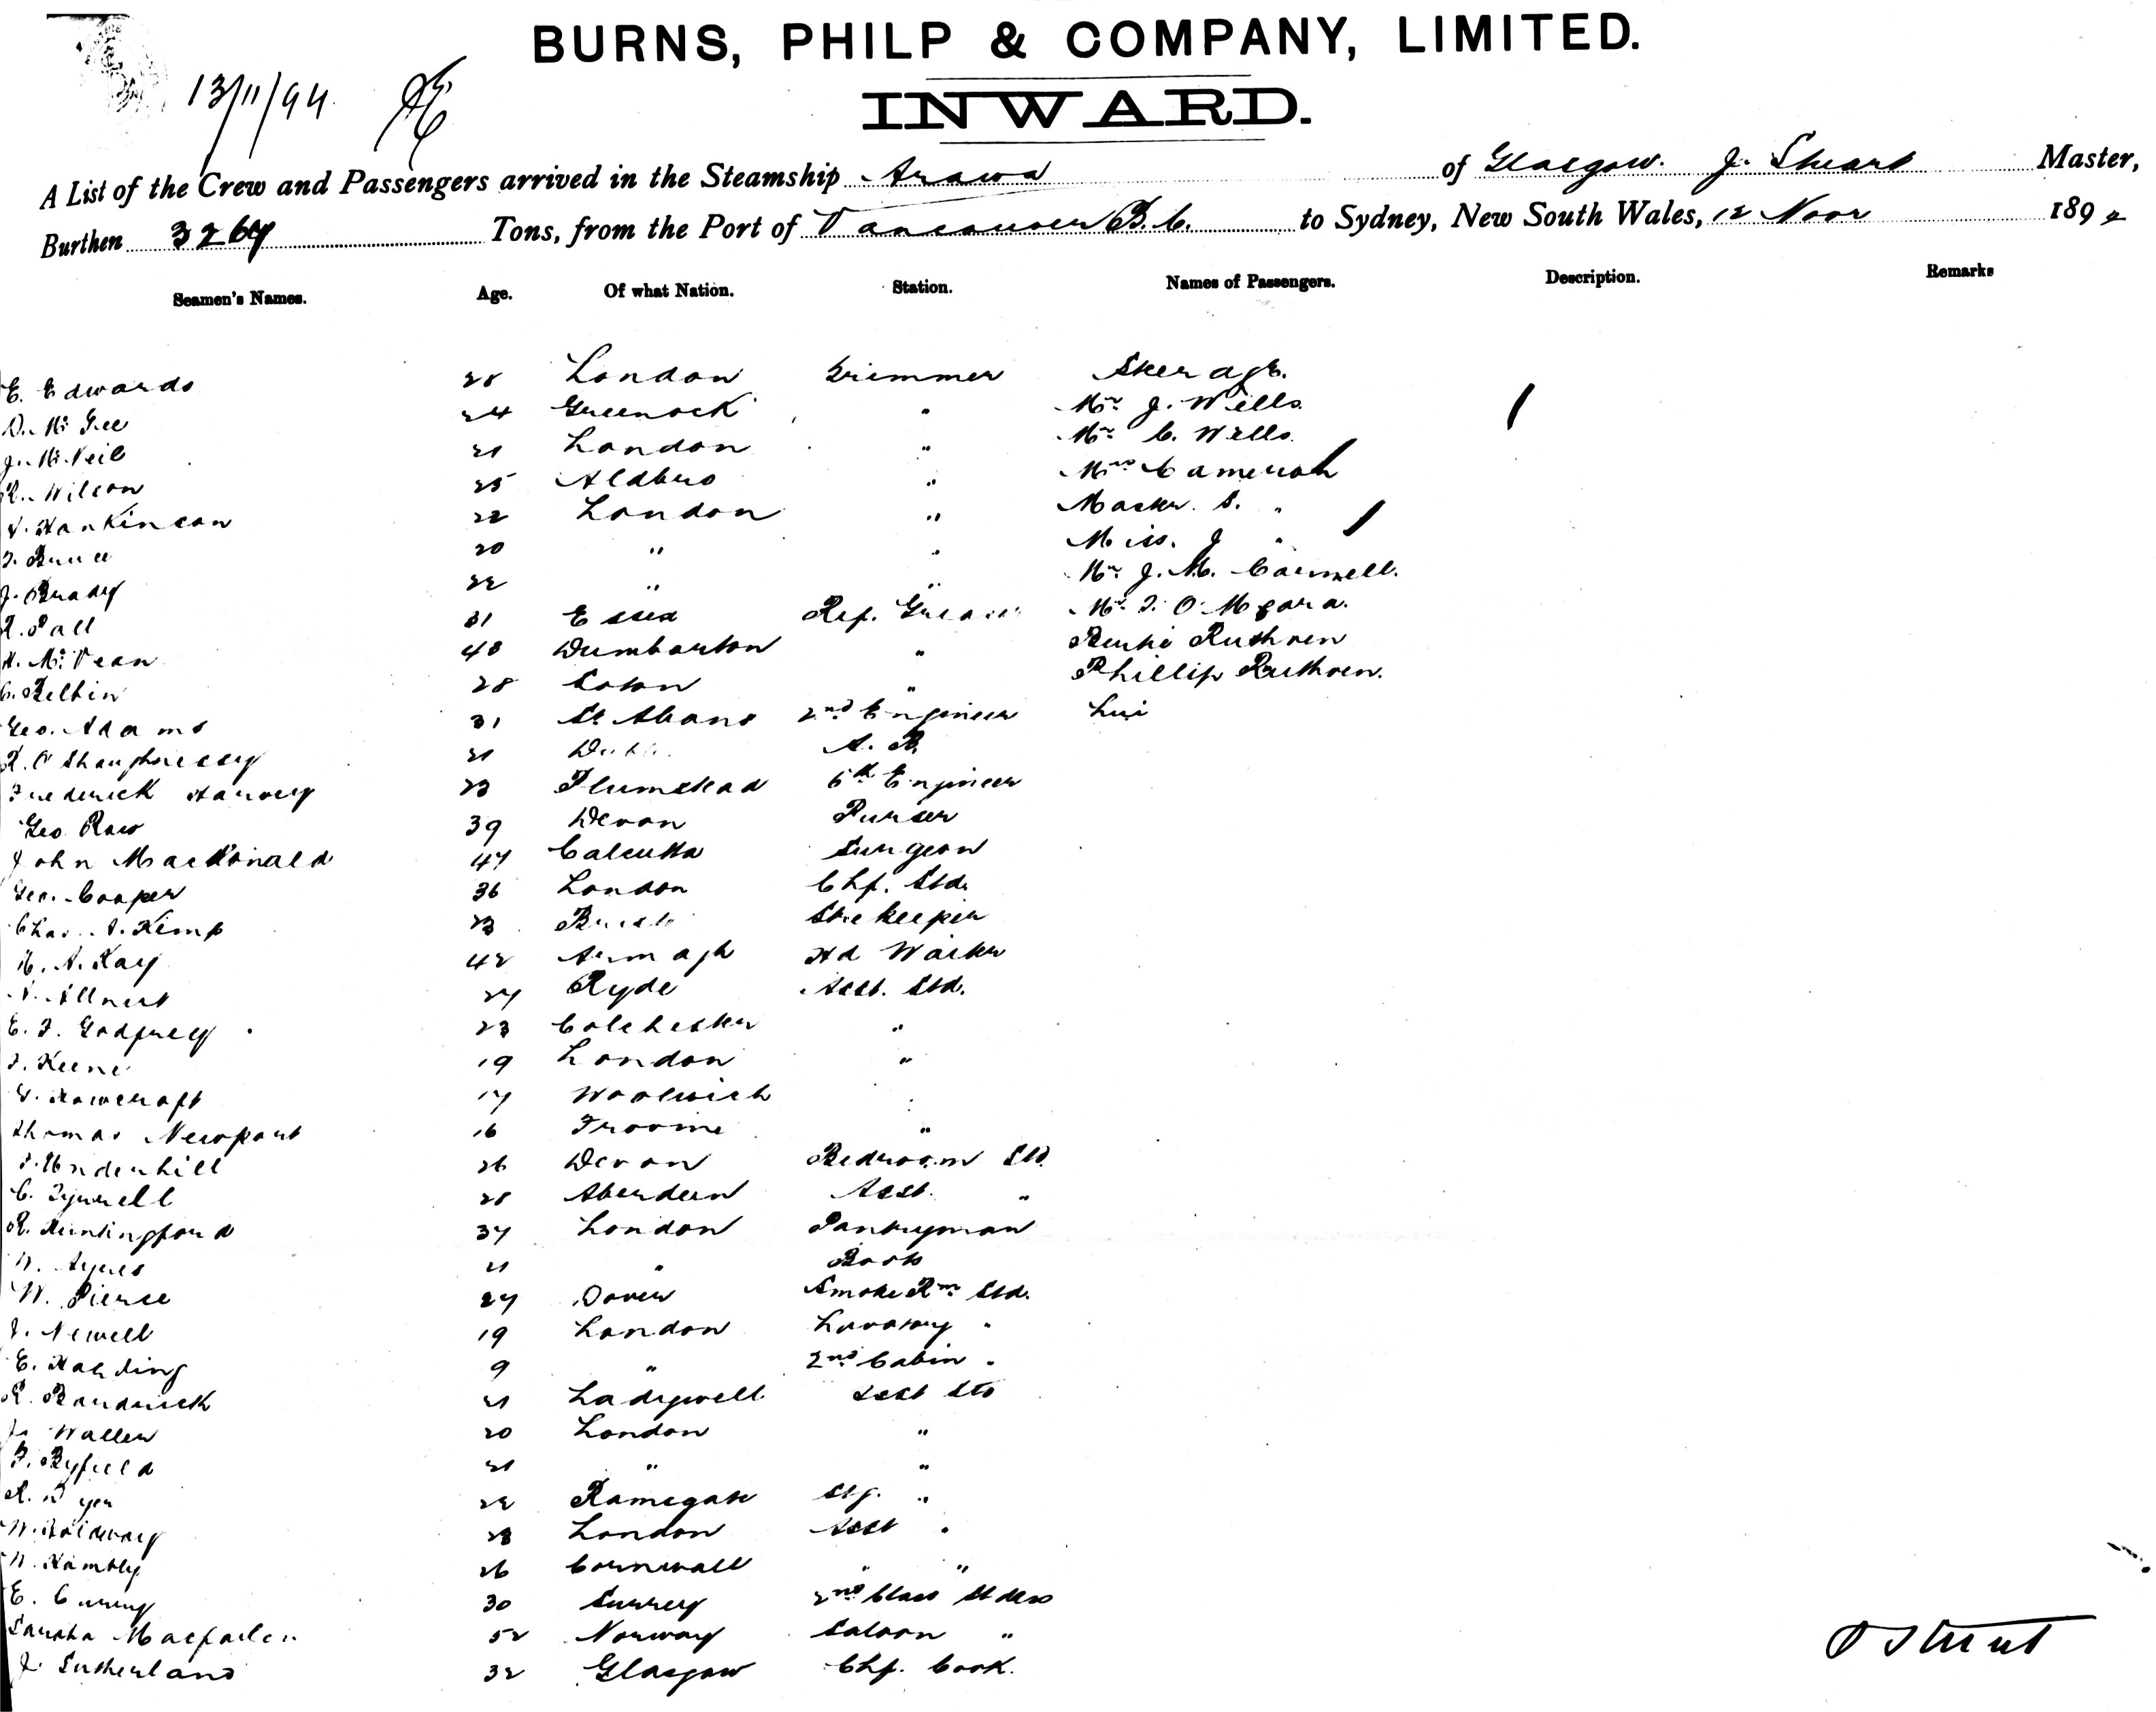 BURNS, PHILP & COMPANY, LIMITED.
13/11/94
INWARD.
A List of the Crew and Passengers arrived in the Steamship Arawa of Glasgow. J. Stuart Master,
Burthen Tons, from the Port of Vancouver B.C. to Sydney, New South Wales, 12 Novr 189
Seamen's Names. Age. Of what Nation. Station. Names of Passengers. Description. Remarks
E. Edwards 28 London Trimmer Steerage.
D. McGee 24 Greenock " Mr. J. Wells.
J. McNeil 21 London " Mr. C. Wells.
R. Wilson 25 Aldbro " Mrs Cameron
Hankinson 22 London " Master. S. "
20 " " Miss. J "
J. Brady 22 " " Mr. J. M. Carmell.
31 Essex Ref. Mr. T. O'Meara.
H. McVean 48 Dumbarton " Ruthven
28 " Phillip Ruthven.
Geo. Adams 31 St Albans 2nd Engineer Lui
R. O'Shaughnessy 21 A. B.
Frederick Harvey 23 Plumstead 6th Engineer
Geo Raw 39 Devon Purser
John MacDonald 47 Calcutta Surgeon
Geo. Cooper 36 London Chf. Std.
Chas. Kemp 23 Storekeeper
H. A. Kay 42 Armagh Hd Waiter
27 Ryde Asst. Std.
E. F. Godfrey 23 Colchester "
Keene 19 London "
Howcroft 17 Woolwich "
Thomas Newport 16 Froome "
Underhill 26 Devon Bedroom Std.
C. Tyrrell 28 Aberdeen Asst. "
R. Huntingford 37 London Pantryman
W. Ayres 21 " Boots
W. Pierce 27 Dover Smoke Rm Std.
J. Newell 19 London Lavatory "
E. Harding 9 " 2nd Cabin "
21 Ladywell Asst Std
Waller 20 London "
F. Byfield 21 " "
22 Ramsgate Stg. "
W. Holdway 28 London Asst "
W. Hambly 26 Cornwall " "
E. 30 Surrey 2nd Class Stdess
52 Norway Saloon "
J. Sutherland 32 Glasgow Chf. Cook.